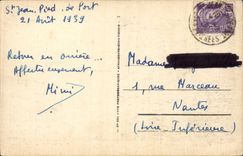 St Jean. Pied. de Port
21 Août 1939
Retour en arrière...
Affectueusement,
Mimi
Madame
1, rue Marceau
Nantes
(Loire Inférieure)